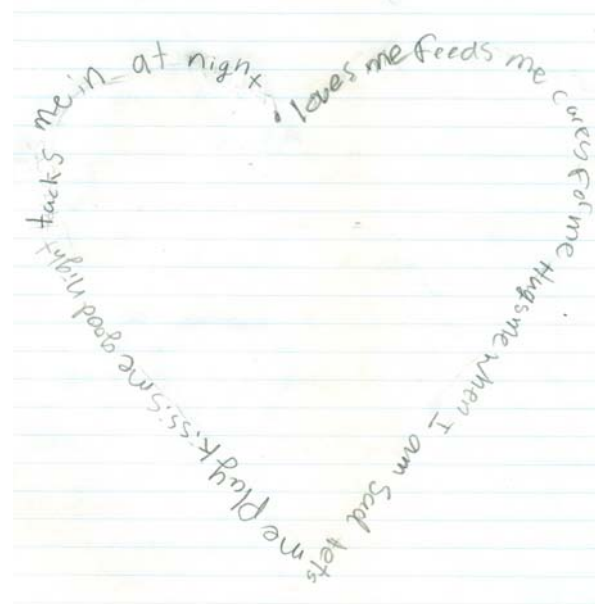 loves me feeds me cares for me Hugs me when I am Sad lets me play kissis me good night tacks me in at night.